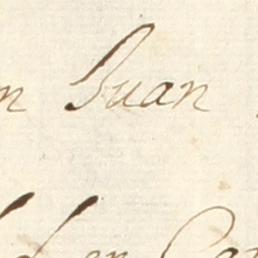 n Juan
d en Ca